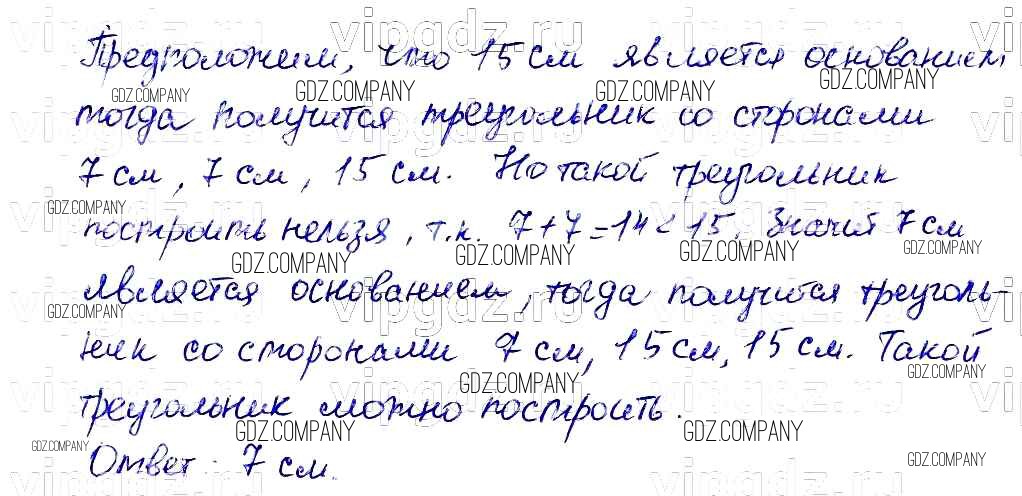 Предположим, что 15 см является основанием,
тогда получится треугольник со сторонами
7 см, 7 см, 15 см. Но такой треугольник
построить нельзя, т.к. 7+7=14<15. Значит 7 см
является основанием, тогда получится треуголь-
ник со сторонами 7 см, 15 см, 15 см. Такой
треугольник можно построить.
Ответ: 7 см.
vipgdz.ru
GDZ.COMPANY